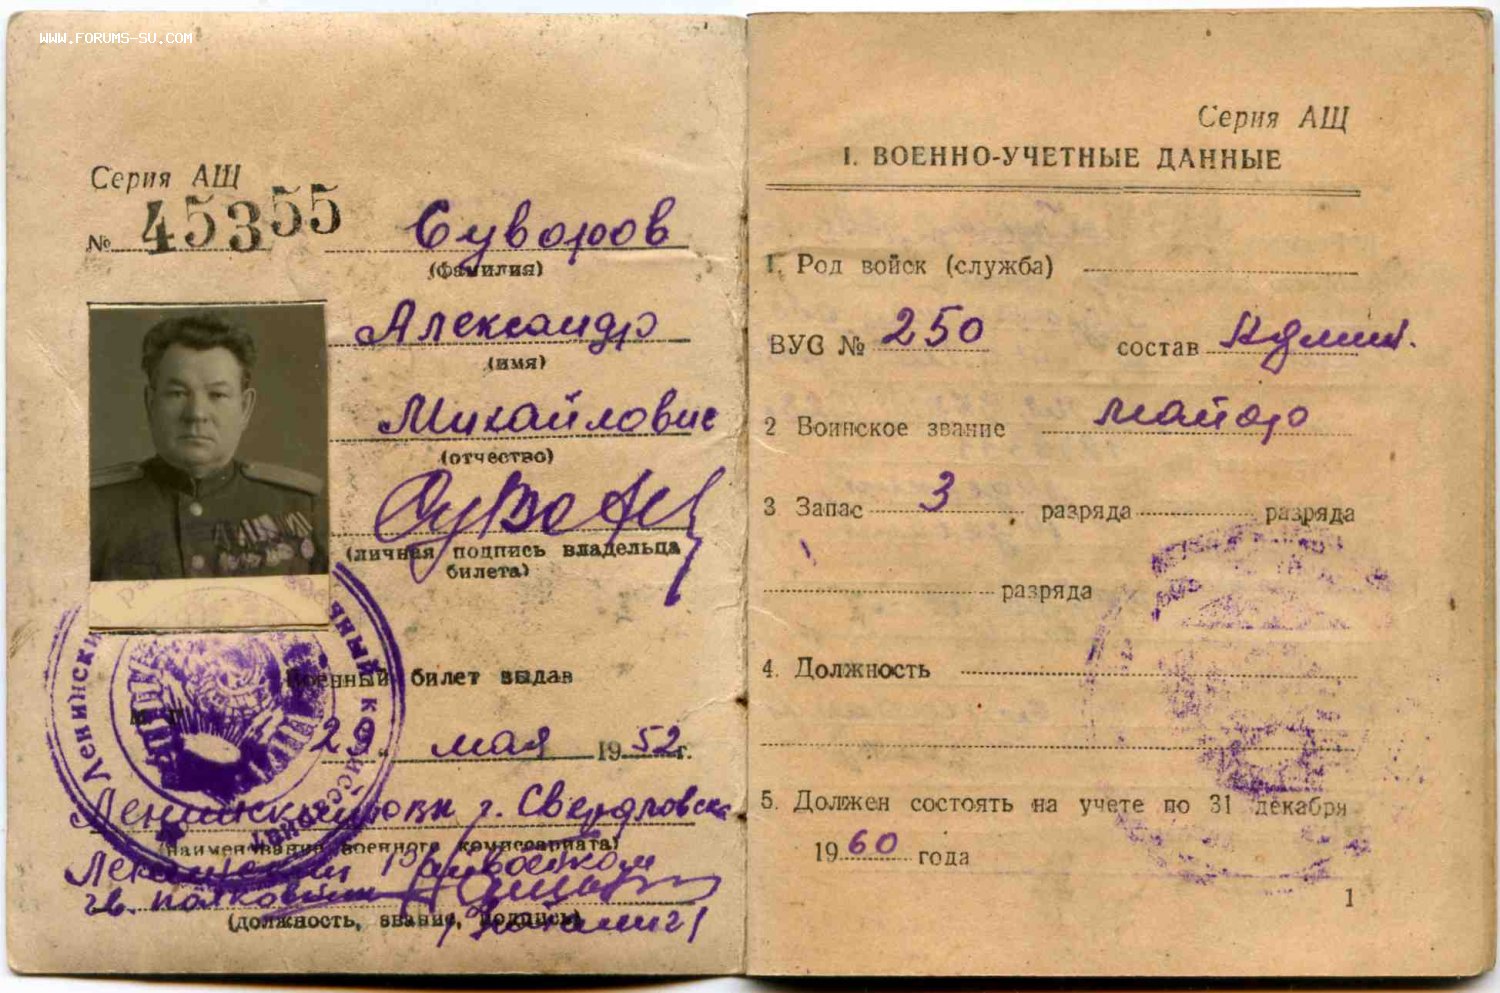 WWW.FORUMS-SU.COM
Серия АЩ
№ 45355
Суворов
(фамилия)
Александр
(имя)
Михайлович
(отчество)
(личная подпись владельца
билета)
Военный билет выдан
М. П.
„29“ мая 1952 г.
г. Свердловска
(наименование военного комиссариата)
Ленинский Райвоенком
гв. полковник
(должность, звание, подпись)
Серия АЩ
I. ВОЕННО-УЧЕТНЫЕ ДАННЫЕ
1. Род войск (служба)
ВУС № 250 состав Админ.
2 Воинское звание майор
3 Запас 3 разряда разряда
разряда
4. Должность
5. Должен состоять на учете по 31 декабря
1960 года
1